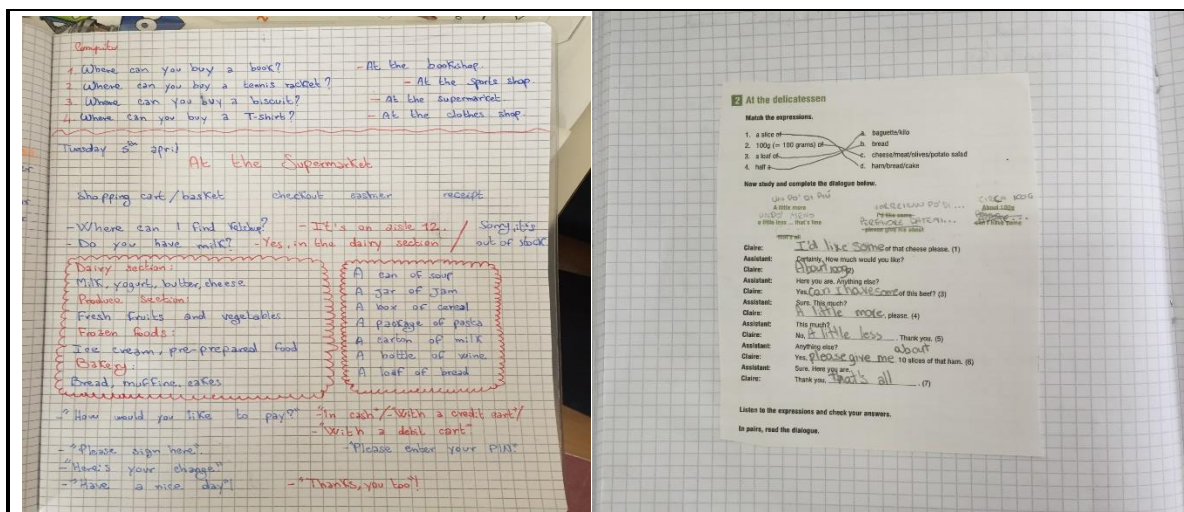 Compito
1. Where can you buy a book? - At the bookshop.
2 Where can you buy a tennis racket? - At the sports shop.
3 Where can you buy a biscuit? - At the supermarket
4 Where can you buy a T-shirt? - At the clothes shop.
Tuesday 5th april
At the Supermarket
shopping cart/basket checkout cashier receipt
- Where can I find Ketchup? - It's on aisle 12. / Sorry, it's
- Do you have milk? - Yes, in the dairy section / out of stock
Dairy section:
Milk, yogurt, butter, cheese
Produce section:
Fresh fruits and vegetables
Frozen foods:
Ice cream, pre-prepared food
Bakery:
Bread, muffins, cakes
A can of soup
A jar of jam
A box of cereal
A package of pasta
A carton of milk
A bottle of wine
A loaf of bread
- "How would you like to pay?" - "In cash"/-"With a credit cart"/
- "With a debit cart"
- "Please sign here". - "Please enter your PIN".
- "Here's your change"
- "Have a nice day"! - "Thanks, you too"!
2 At the delicatessen
Match the expressions.
1. a slice of a. baguette/kilo
2. 100g (= 100 grams) of b. bread
3. a loaf of c. cheese/meat/olives/potato salad
4. half a d. ham/bread/cake
Now study and complete the dialogue below.
UN PO' DI PIÚ VORREI UN PO' DI... CIRCA 100G
A little more I'd like some About 100g
UN PO' MENO PER FAVORE DATEMI...
a little less ... that's fine please give me about can I have some
that's all
Claire: I'd like some of that cheese please. (1)
Assistant: Certainly. How much would you like?
Claire: About 100g (2)
Assistant: Here you are. Anything else?
Claire: Yes, can I have some of this beef? (3)
Assistant: Sure. This much?
Claire: A little more, please. (4)
Assistant: This much?
Claire: No, A little less. Thank you. (5)
Assistant: Anything else?
Claire: Yes, please give me about 10 slices of that ham. (6)
Assistant: Sure. Here you are.
Claire: Thank you, that's all. (7)
Listen to the expressions and check your answers.
In pairs, read the dialogue.